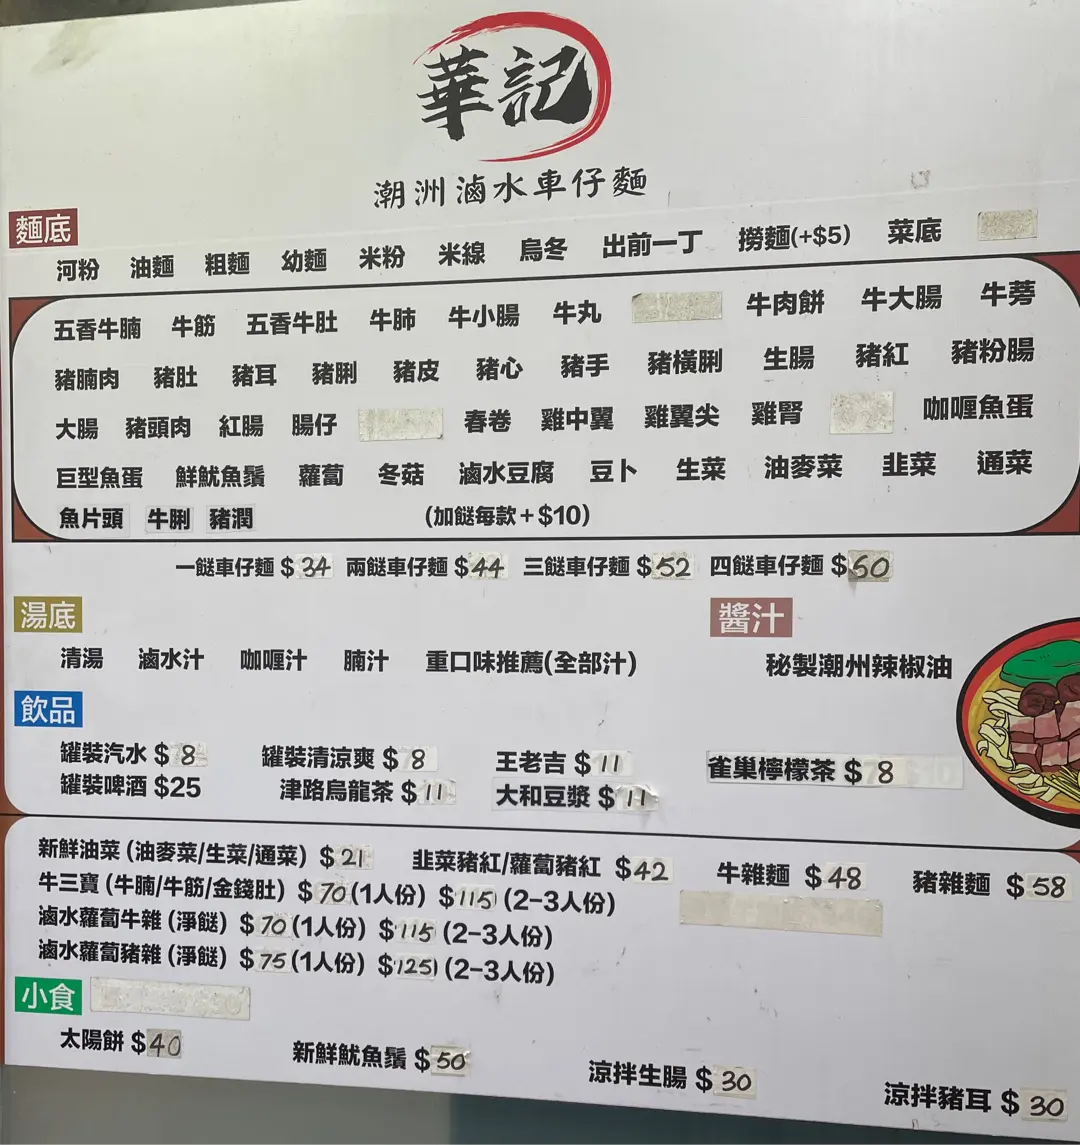 華記
潮洲滷水車仔麵
麵底
河粉 油麵 粗麵 幼麵 米粉 米線 烏冬 出前一丁 撈麵(+$5) 菜底
五香牛腩 牛筋 五香牛肚 牛肺 牛小腸 牛丸 牛肉餅 牛大腸 牛蒡
豬腩肉 豬肚 豬耳 豬脷 豬皮 豬心 豬手 豬橫脷 生腸 豬紅 豬粉腸
大腸 豬頭肉 紅腸 腸仔 春卷 雞中翼 雞翼尖 雞腎 咖喱魚蛋
巨型魚蛋 鮮魷魚鬚 蘿蔔 冬菇 滷水豆腐 豆卜 生菜 油麥菜 韭菜 通菜
魚片頭 牛脷 豬潤 (加餸每款+$10)
一餸車仔麵 $34 兩餸車仔麵 $44 三餸車仔麵 $52 四餸車仔麵 $60
湯底 醬汁
清湯 滷水汁 咖喱汁 腩汁 重口味推薦(全部汁) 秘製潮州辣椒油
飲品
罐裝汽水 $8 罐裝清涼爽 $8 王老吉 $11 雀巢檸檬茶 $8
罐裝啤酒 $25 津路烏龍茶 $11 大和豆漿 $11
新鮮油菜 (油麥菜/生菜/通菜) $21 韭菜豬紅/蘿蔔豬紅 $42 牛雜麵 $48 豬雜麵 $58
牛三寶 (牛腩/牛筋/金錢肚) $70(1人份) $115 (2-3人份)
滷水蘿蔔牛雜 (淨餸) $70(1人份) $115 (2-3人份)
滷水蘿蔔豬雜 (淨餸) $75(1人份) $125 (2-3人份)
小食
太陽餅 $40 新鮮魷魚鬚 $50 涼拌生腸 $30 涼拌豬耳 $30